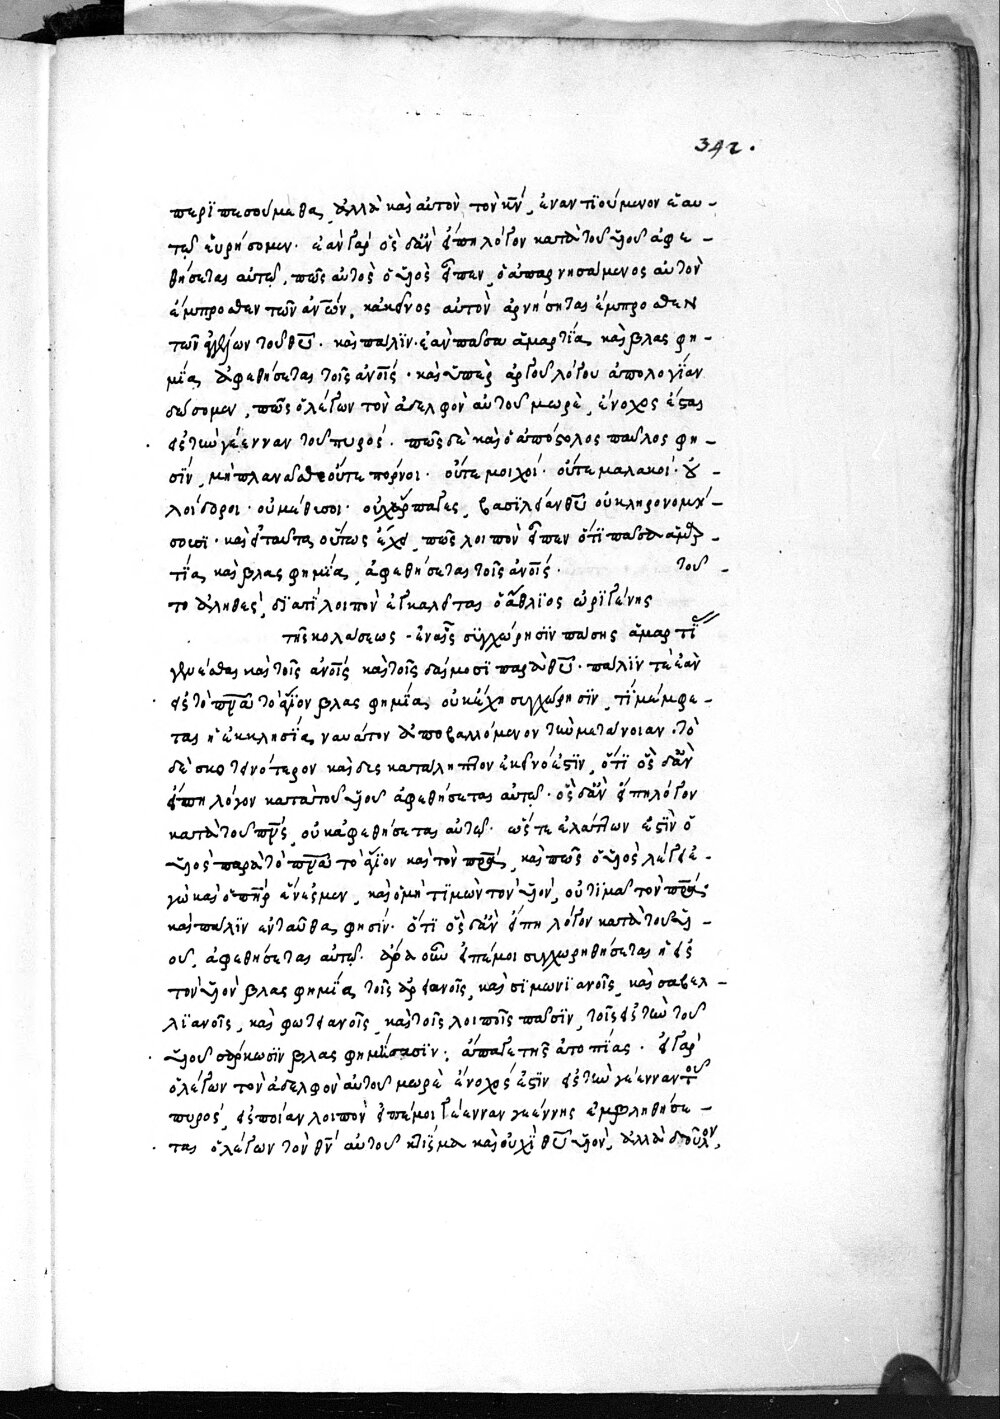 342.
περϊπεσούμεθα, ἀλλὰ καὶ αὐτὸν τὸν κν̄, ἐναντϊούμενον ἑαυ-
τῷ εὑρήσομεν· ἐὰν γὰρ ὃς δἂν εἴπη λόγον κατὰ τοῦ ϋἱοῦ ἀφε-
θήσεται αὐτῷ, πῶς αὐτὸς ὁ ϋἱὸς εἶπεν, ὁ ἀπαρνησάμενος αὐτὸν
ἔμπροσθεν τῶν ἀνων̄, κἀκεῖνος αὐτὸν ἀρνήσηται ἔμπροσθεν
τῶν ἀγγέλων τοῦ θῡ. καὶ πάλϊν· ἐὰν πᾶσα ἁμαρτΐα, καὶ βλασφη-
μΐα, ἀφεθήσεται τοῖς ἀνοῑς· καὶ ὑπὲρ ἀργοῦ λόγου ἀπολογΐαν
δώσομεν, πῶς ὁ λέγων τὸν ἀδελφὸν αὐτοῦ μωρὲ, ἔνοχος ἔσται
εἰς τὴν γέενναν τοῦ πυρός. πῶς δὲ καὶ ὁ ἀπόστολος παῦλος φη-
σϊν, μὴ πλανᾶσθε οὔτε πόρνοι· οὔτε μοιχοί· οὔτε μαλακοί· οὐ
λοίδοροι· οὐ μέθυσοι· οὐχ ἅρπαγες, βασϊλείαν θῡ οὐ κληρονομή-
σουσϊ· καὶ εἰ ταῦτα οὕτως ἔχει, πῶς λοιπὸν εἶπεν ὅτϊ πᾶσα ἁμαρ-
τΐα, καὶ βλασφημΐα, ἀφεθήσεται τοῖς ἀνοῑς. τοῦ-
το ἀληθές, δϊατί λοιπὸν ἐγκαλεῖται ὁ ἄθλϊος ὠρϊγένης
τῆς κολάσεως συγχώρησϊν πάσης ἁμαρτΐ
καὶ τοῖς ἀνοῑς καὶ τοῖς δαίμοσϊ παρὰ θῡ· πάλϊν τὲ ἐὰν
εἰς τὸ πνᾱ τὸ ἅγϊον βλασφημΐα, οὐκ ἔχη συγχώρησϊν, τΐ μέμφε-
ται ἡ ἐκκλησΐα, ναυάτον ἀποβαλλόμενον τὴν μετάνοιαν. τὸ
δὲ σκοτεινότερον καὶ δυσκατάληπτον ἐκεῖνό ἐστϊν, ὅτϊ ὃς δἂν
εἴπη λόγον κατὰ τοῦ ϋἱοῦ ἀφεθήσεται αὐτῷ· ὃς δἂν εἴπη λόγον
κατὰ τοῦ πνς̄, οὐκ ἀφεθήσεται αὐτῷ. ὥστε ἐλάττων ἐστϊν ὁ
ϋἱὸς παρὰ τὸ πνᾱ τὸ ἅγϊον καὶ τὸν πρᾱ, καὶ πῶς ὁ ϋἱὸς λέγει ἐ-
γὼ καὶ ὁ πηρ̄ ἕν ἐσμεν, καὶ ὁ μὴ τϊμῶν τὸν ϋἱόν, οὐ τϊμᾶ τὸν πρᾱ·
καὶ πάλϊν ἐνταῦθα φησίν· ὅτϊ ὃς δἂν εἴπη λόγον κατὰ τοῦ ϋἱ-
οῦ, ἀφεθήσεται αὐτῷ. ἆρα οὖν εἰπέ μοι συγχωρηθήσεται ἡ εἰς
τὸν ϋἱὸν βλασφημΐα, τοῖς ἀρειανοῖς, καὶ σϊμωνϊανοῖς, καὶ σαβελ-
λϊανοῖς, καὶ φωτεινοῖς, καὶ τοῖς λοιποῖς πᾶσϊν, τοῖς εἰς τὴν τοῦ
ϋἱοῦ σάρκωσϊν βλασφημήσασϊν; ἄπαγε τῆς ἀτοπΐας. εἰ γὰρ
ὁ λέγων τὸν ἀδελφὸν αὐτοῦ μωρὲ ἔνοχός ἐστϊν εἰς τὴν γέενναν τοῦ
πυρός, εἰς ποίαν λοιπὸν εἰπέ μοι γέενναν γεέννης ἐμβληθήσε-
ται ὁ λέγων τὸν θν̄ αὐτοῦ κτΐσμα καὶ οὐχὶ θῡ ϋἱόν, ἀλλὰ δοῦλον,